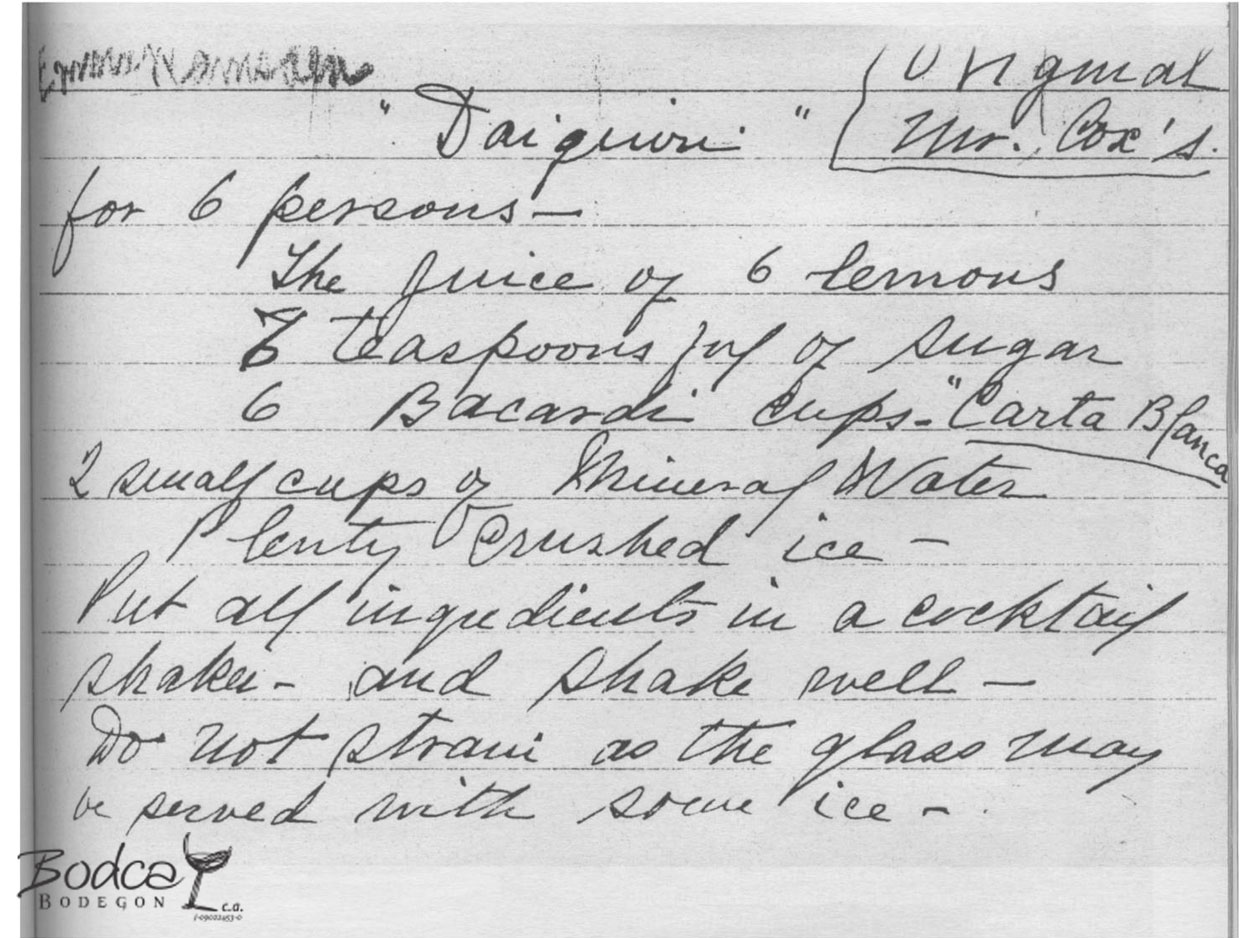 (Original
"Daiquiri" Mr. Cox's.
for 6 persons—
The juice of 6 lemons
6 teaspoonsful of sugar
6 Bacardi cups - "Carta Blanca
2 small cups of Mineral Water
Plenty crushed ice —
Put all ingredients in a cocktail
shaker - and shake well —
Do not strain as the glass may
be served with some ice -
Bodca
BODEGON c.a.